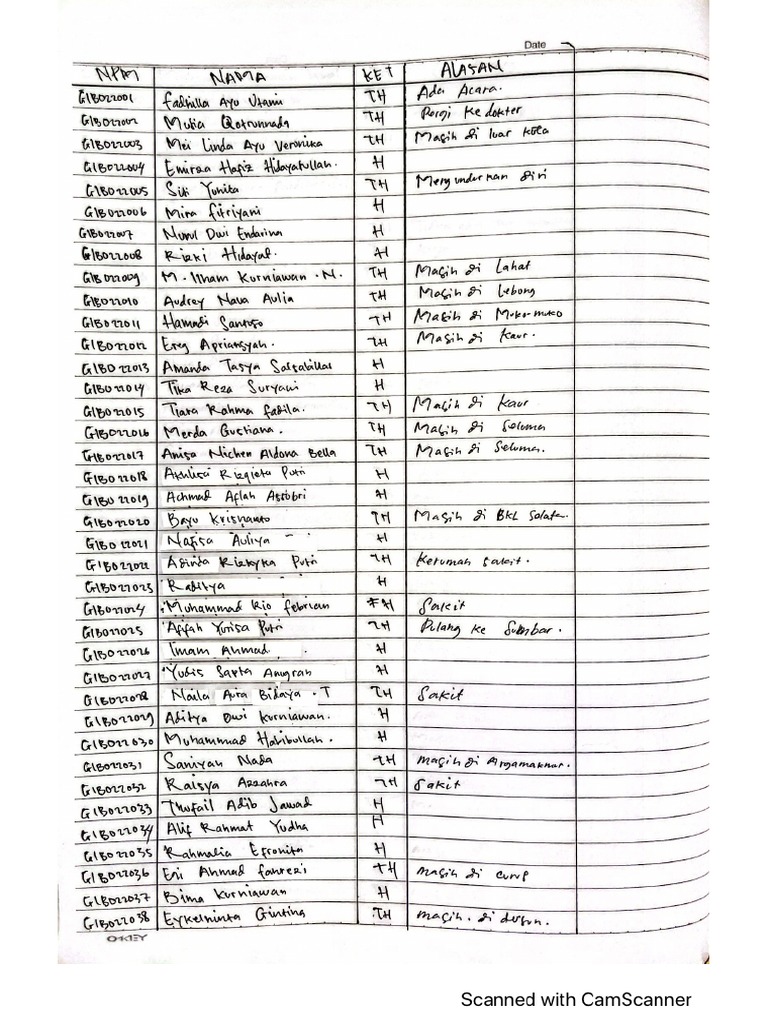 Date
NPM NAMA KET ALASAN
G1B022001 Fadhilla Ayu Utami TH Ada Acara.
G1B022002 Mutia Qotrunnada TH Pergi Ke dokter
G1B022003 Mei Linda Ayu Veronika TH Masih di luar kota
G1B022004 Emirza Hafiz Hidayatullah. H
G1B022005 Siti Yunita TH Mengundurkan diri
G1B022006 Mira Fitriyani H
G1B022007 Nurul Dwi Endarina H
G1B022008 Rizki Hidayat. H
G1B022009 M. Ilham Kurniawan. N. TH Masih di Lahat
G1B022010 Audrey Nava Aulia TH Masih di Lebong
G1B022011 Hamadi Santoso TH Masih di Muko-muko
G1B022012 Ereg Apriansyah. TH Masih di Kaur.
G1B022013 Amanda Tasya Salsabillas H
G1B022014 Tika Reza Suryani H
G1B022015 Tiara Rahma Fadila. TH Masih di Kaur
G1B022016 Merda Gustiana. TH Masih di Seluma
G1B022017 Anisa Nichen Aldona Bella TH Masih di Seluma.
G1B022018 Rizqieta Putri H
G1B022019 Achmad Aflah Assobri H
G1B022020 Bayu Krisnanto TH Masih di BKL Selata.
G1B022021 Nafisa Auliya H
G1B022022 Adinda Rizkyka Putri TH Kerumah sakit.
G1B022023 Raditya H
G1B022024 Muhammad Rio Febrian TH Sakit
G1B022025 Afifah Yurisa Putri TH Pulang ke Sumbar.
G1B022026 Imam Ahmad H
G1B022027 Yudis Sapta Anugrah H
G1B022028 Naila Aura Bidaya. T TH Sakit
G1B022029 Aditya Dwi Kurniawan. H
G1B022030 Muhammad Habibullah. H
G1B022031 Saniyah Nada TH masih di Argamakmur.
G1B022032 Raisya Azzahra TH Sakit
G1B022033 Thufail Adib Jawad H
G1B022034 Alif Rahmat Yudha H
G1B022035 Rahmalia Efronita H
G1B022036 Eri Ahmad Fahrezi TH masih di curup
G1B022037 Bima Kurniawan H
G1B022038 Eykelninta Ginting TH masih. di dusun.
OKEY
Scanned with CamScanner